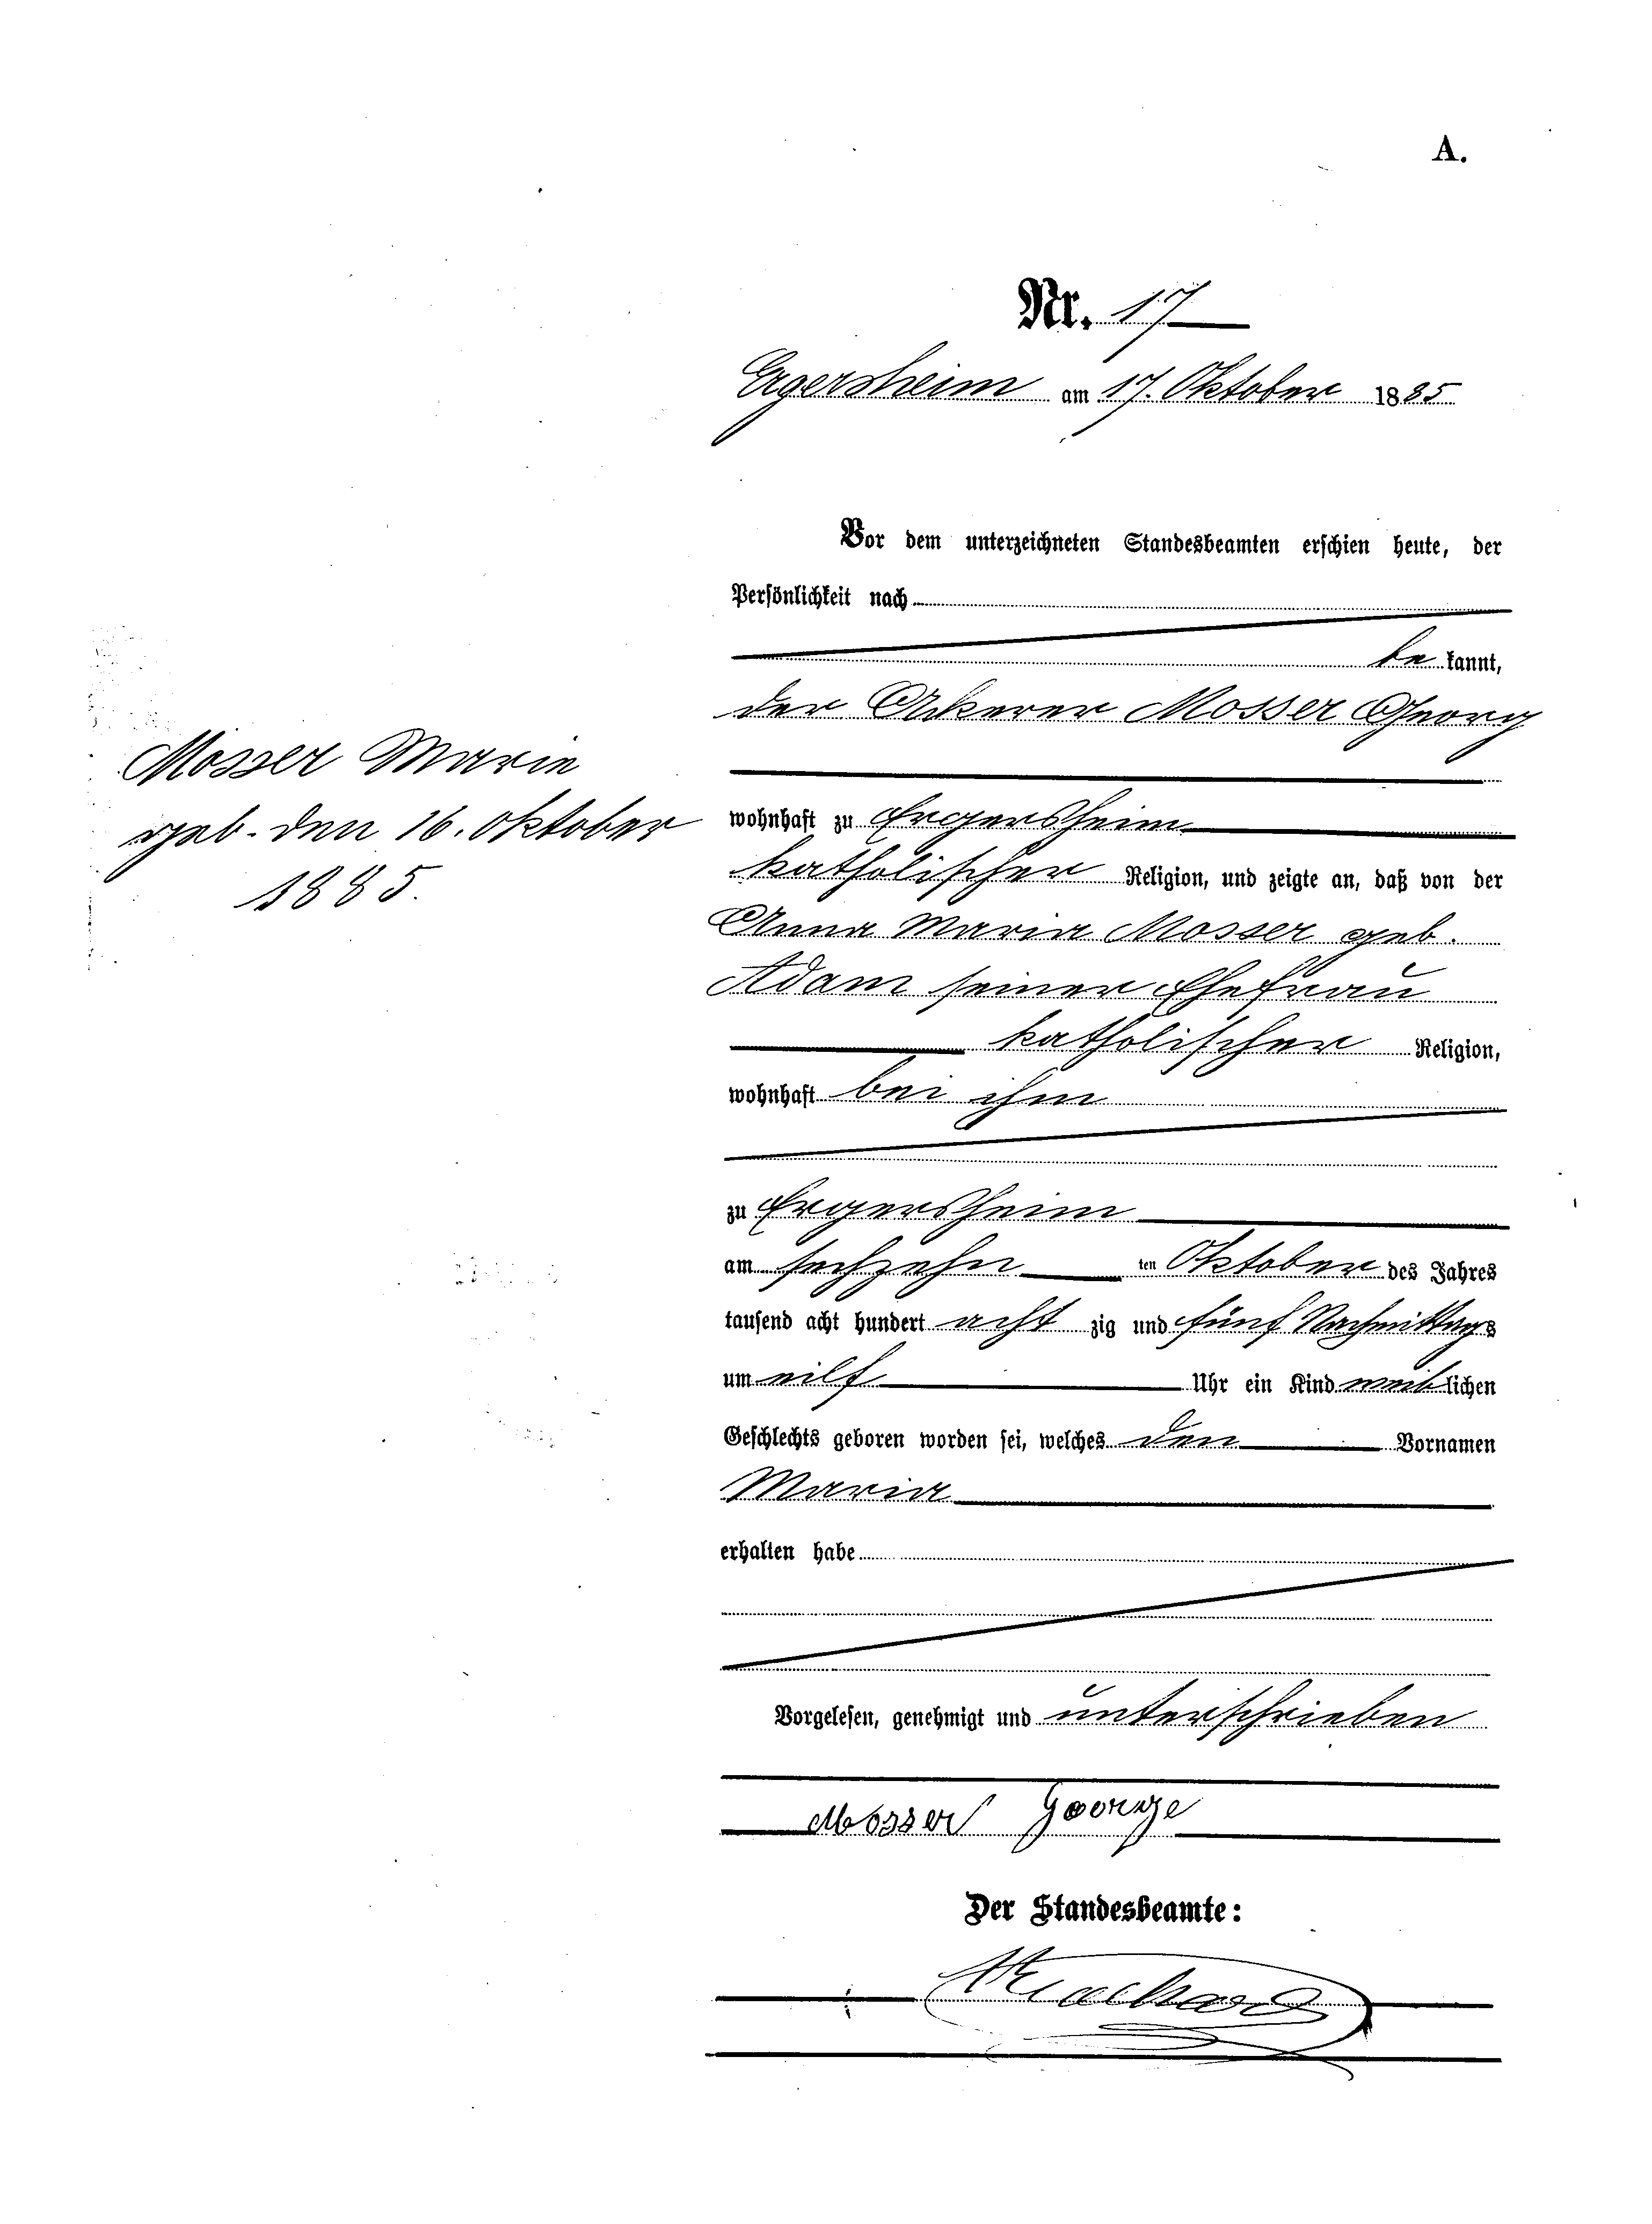 A.
Nr. 17
Ergersheim am 17. Oktober 1885
Vor dem unterzeichneten Standesbeamten erschien heute, der
Persönlichkeit nach
be kannt,
der Ackerer Mosser Georg
Mosser Marie
geb. den 16. Oktober
1885.
wohnhaft zu Ergersheim
katholischer Religion, und zeigte an, daß von der
Anna Maria Mosser geb.
Adam seiner Ehefrau
katholischer Religion,
wohnhaft bei ihm
zu Ergersheim
am sechzehn ten Oktober des Jahres
tausend acht hundert acht zig und fünf Nachmittags
um eilf Uhr ein Kind weiblichen
Geschlechts geboren worden sei, welches den Vornamen
Maria
erhalten habe
Vorgelesen, genehmigt und unterschrieben
Mosser George
Der Standesbeamte: